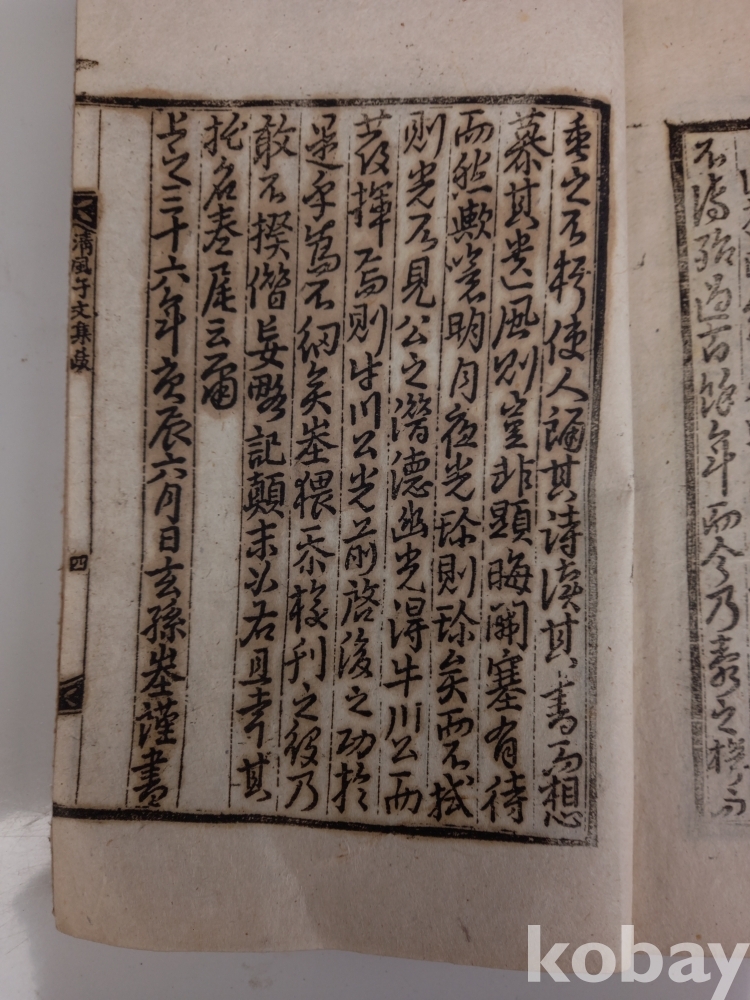 不 治 過古 餘年而今乃 之 而
垂之不朽使人誦其詩讀其書而想
慕其遺風則豈非顯晦開塞有待
而然歟噫明月夜光珍則珍矣而不拭
則光不見公之潛德幽光得牛川公而
發揮焉則牛川公光前啓後之功於
是乎爲不細矣埊猥忝校刊之役乃
敢不揆僭妄略記顛末以右且幸其
托名卷尾云爾
上之三十六年庚辰六月日玄孫埊謹書
淸風子文集跋
四
kobay